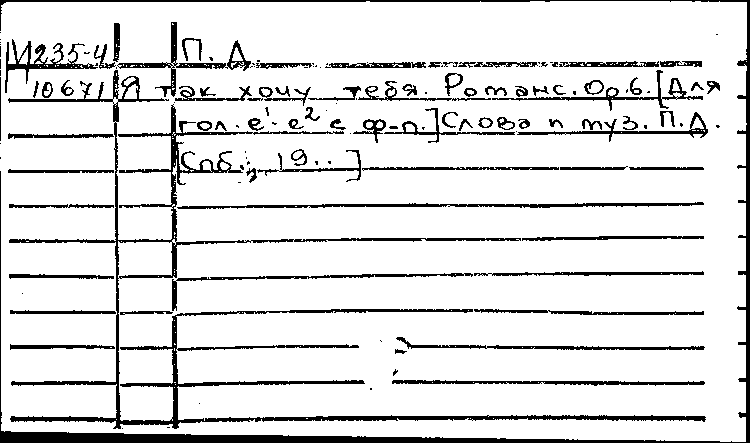 М235-4 П. Д.
10671 Я так хочу тебя. Романс. Ор. 6. [Для
гол. e¹-e² с ф-п.] Слова и муз. П. Д.
[Спб., 19..]